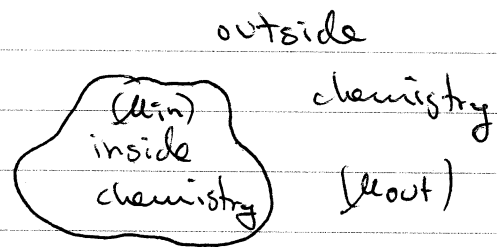 outside
chemistry
(μin)
inside
chemistry
(μout)